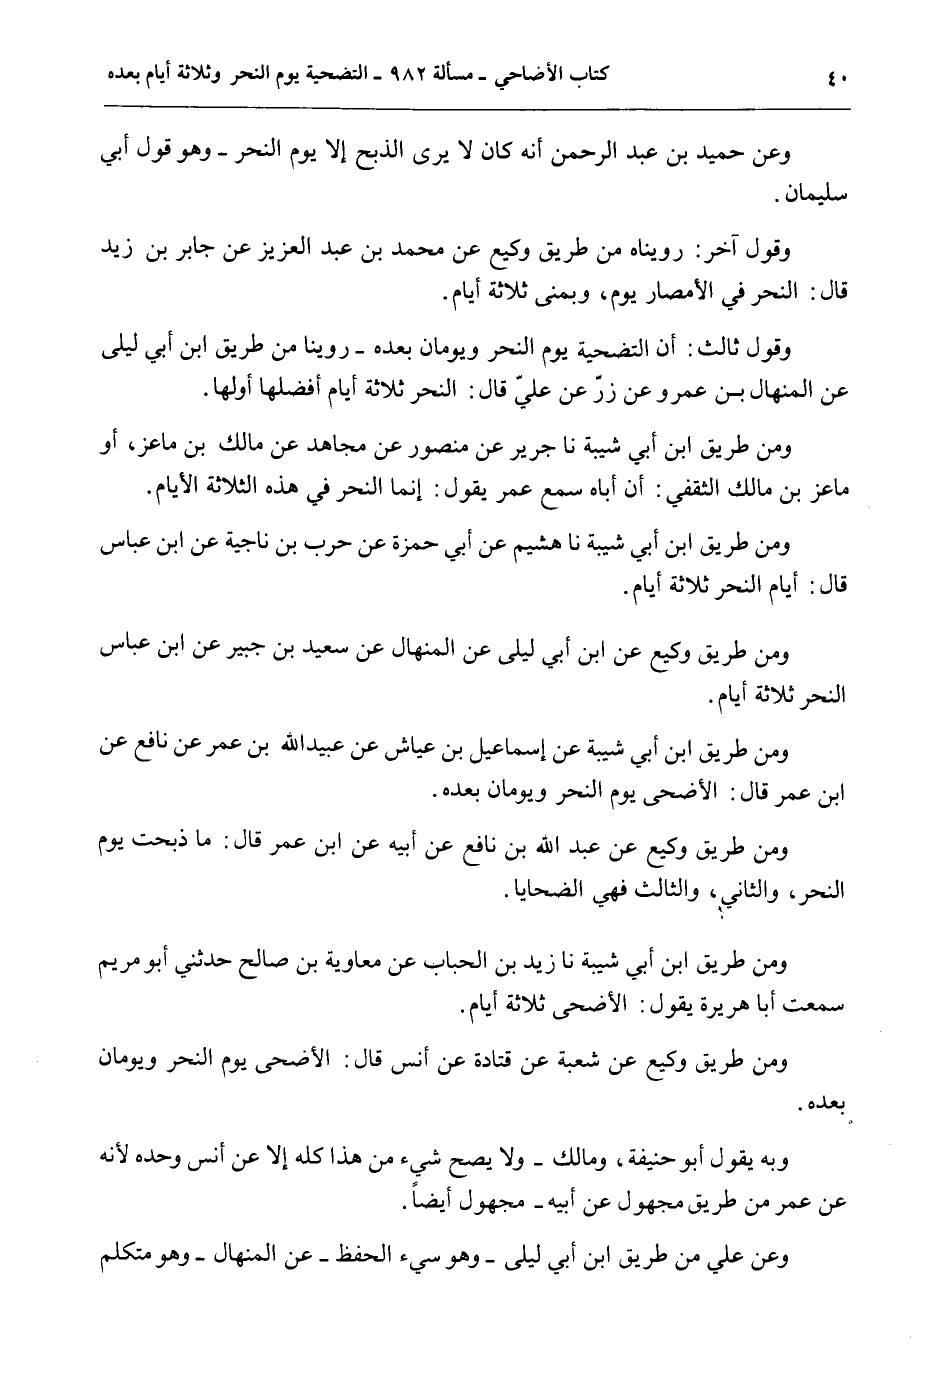 ٤٠ كتاب الأضاحي ـ مسألة ٩٨٢ ـ التضحية يوم النحر وثلاثة أيام بعده
وعن حميد بن عبد الرحمن أنه كان لا يرى الذبح إلا يوم النحر ـ وهو قول أبي
سليمان.
وقول آخر: رويناه من طريق وكيع عن محمد بن عبد العزيز عن جابر بن زيد
قال: النحر في الأمصار يوم، وبمنى ثلاثة أيام.
وقول ثالث: أن التضحية يوم النحر ويومان بعده ـ روينا من طريق ابن أبي ليلى
عن المنهال بـن عمرو عن زرّ عن عليّ قال: النحر ثلاثة أيام أفضلها أولها.
ومن طريق ابن أبي شيبة نا جرير عن منصور عن مجاهد عن مالك بن ماعز، أو
ماعز بن مالك الثقفي: أن أباه سمع عمر يقول: إنما النحر في هذه الثلاثة الأيام.
ومن طريق ابن أبي شيبة نا هشيم عن أبي حمزة عن حرب بن ناجية عن ابن عباس
قال: أيام النحر ثلاثة أيام.
ومن طريق وكيع عن ابن أبي ليلى عن المنهال عن سعيد بن جبير عن ابن عباس
النحر ثلاثة أيام.
ومن طريق ابن أبي شيبة عن إسماعيل بن عياش عن عبيدالله بن عمر عن نافع عن
ابن عمر قال: الأضحى يوم النحر ويومان بعده.
ومن طريق وكيع عن عبد الله بن نافع عن أبيه عن ابن عمر قال: ما ذبحت يوم
النحر، والثاني، والثالث فهي الضحايا.
ومن طريق ابن أبي شيبة نا زيد بن الحباب عن معاوية بن صالح حدثني أبو مريم
سمعت أبا هريرة يقول: الأضحى ثلاثة أيام.
ومن طريق وكيع عن شعبة عن قتادة عن أنس قال: الأضحى يوم النحر ويومان
بعده.
وبه يقول أبو حنيفة، ومالك ـ ولا يصح شيء من هذا كله إلا عن أنس وحده لأنه
عن عمر من طريق مجهول عن أبيه ـ مجهول أيضاً.
وعن علي من طريق ابن أبي ليلى ـ وهو سيء الحفظ ـ عن المنهال ـ وهو متكلم